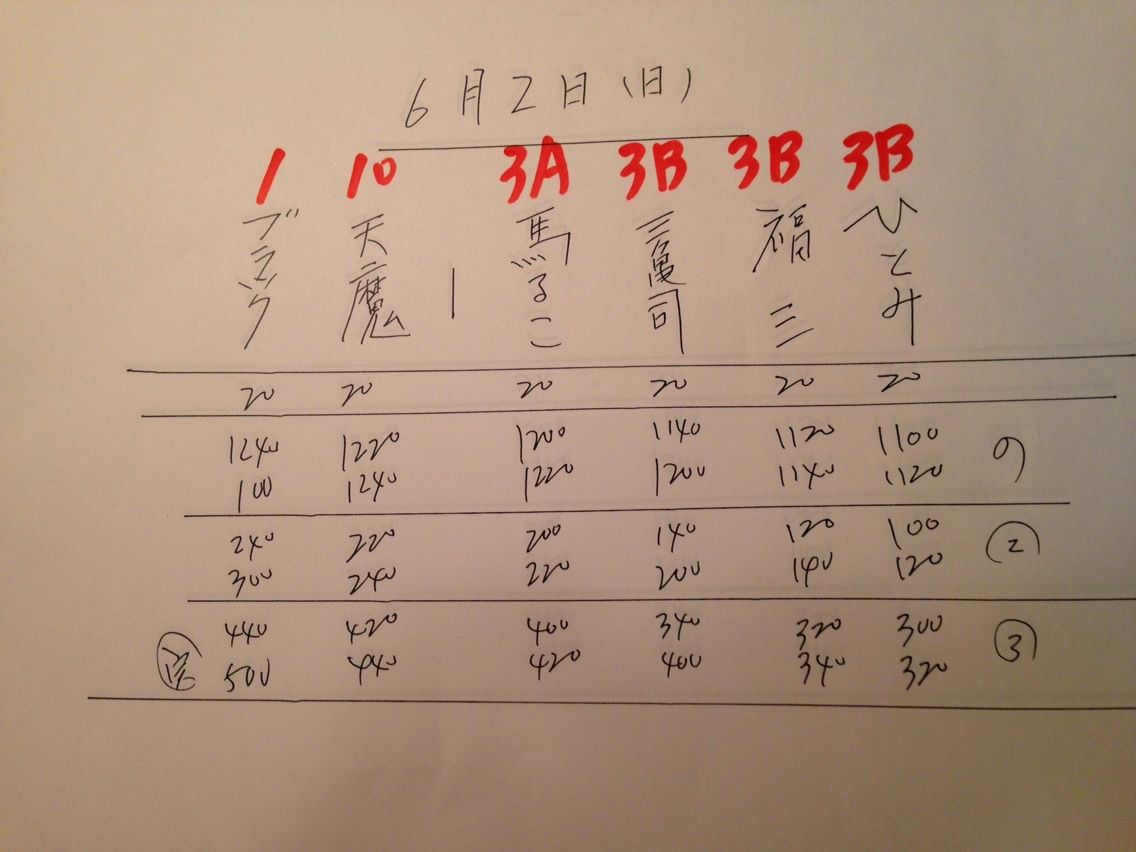 6月2日(日)
1 10 3A 3B 3B 3B
ブラック 天魔 馬るこ 三亀司 福三 ひとみ
20 20 20 20 20 20
1240 1220 1200 1140 1120 1100
100 1240 1220 1200 1140 1120
240 220 200 140 120 100 ②
300 240 220 200 140 120
440 420 400 340 320 300 ③
500 440 420 400 340 320